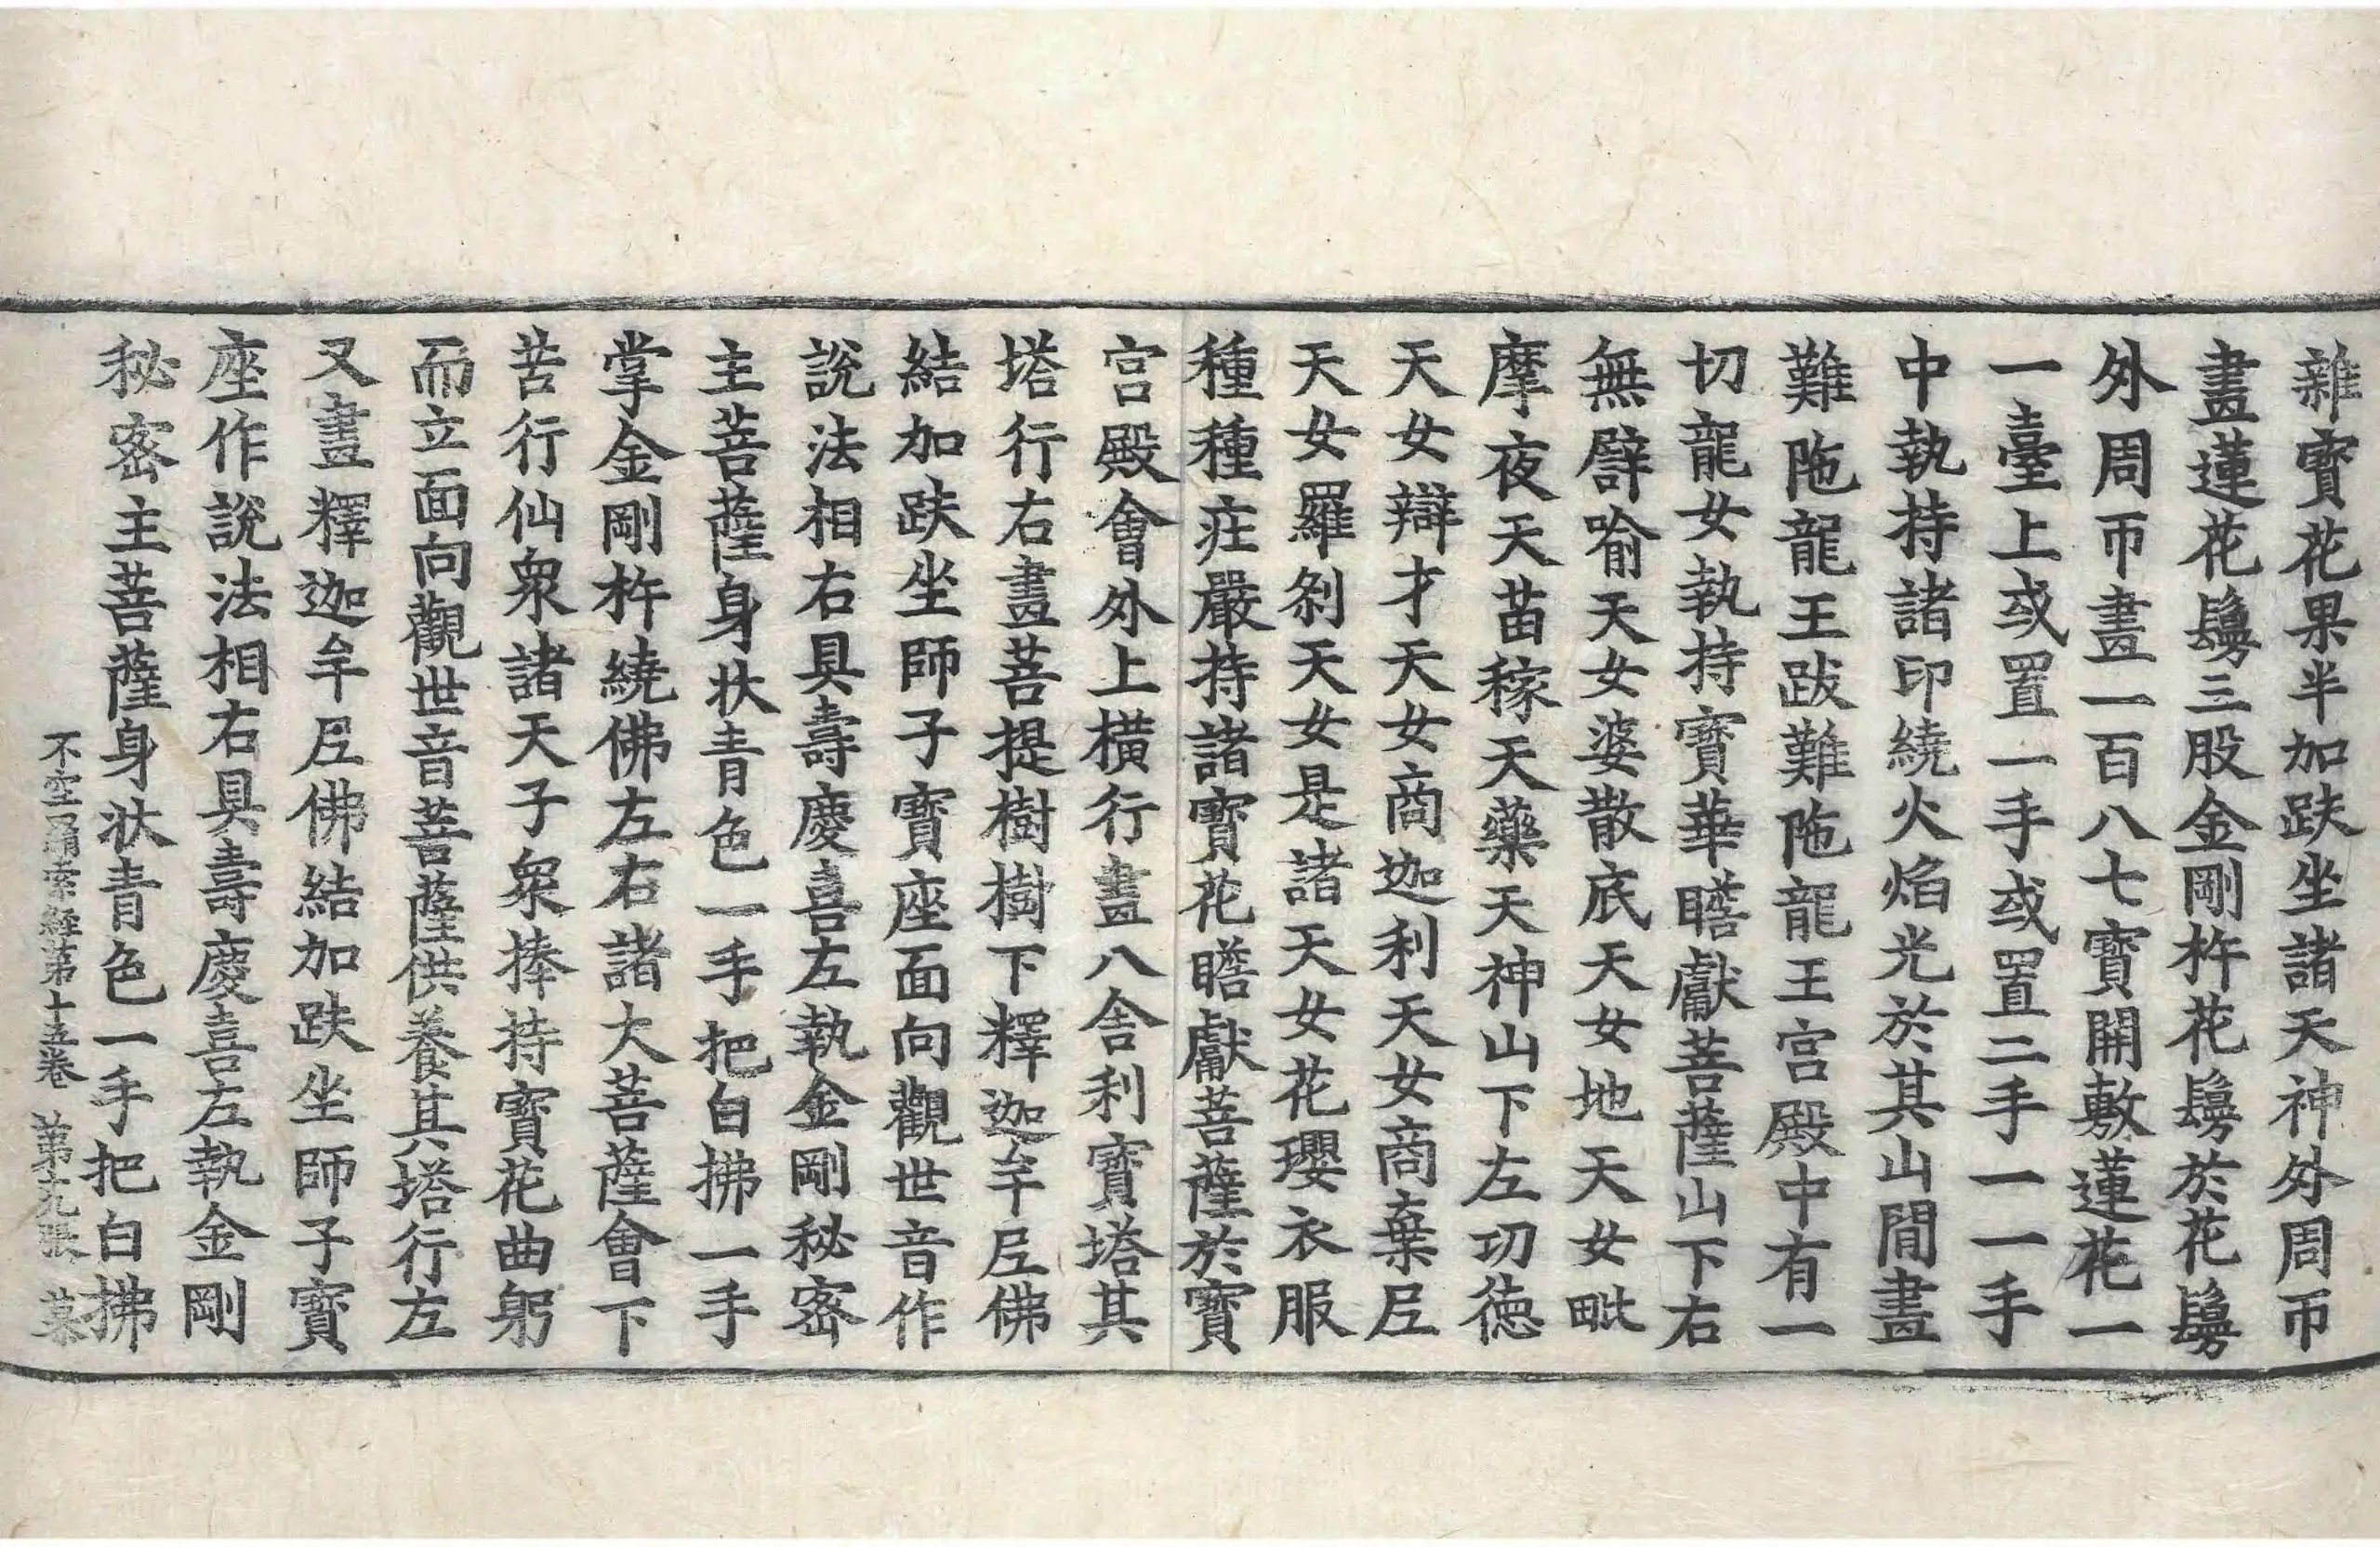 雜寶花果半加趺坐諸天神外周帀
畫蓮花鬘三股金剛杵花鬘於花鬘
外周帀畫一百八七寶開敷蓮花一
一臺上或置一手或置二手一一手
中執持諸印繞火焰光於其山間畫
難陁龍王跋難陁龍王宮殿中有一
切龍女執持寶華瞻獻菩薩山下右
無譬喻天女婆散底天女地天女毗
摩夜天苗稼天藥天神山下左功德
天女辯才天女商迦利天女商棄𡰱
天女羅剎天女是諸天女花瓔衣服
種種莊嚴持諸寶花瞻獻菩薩於寶
宮殿會外上橫行畫八舍利寶塔其
塔行右畫菩提樹樹下釋迦牟𡰱佛
結加趺坐師子寶座面向觀世音作
說法相右具壽慶喜左執金剛秘密
主菩薩身狀青色一手把白拂一手
掌金剛杵繞佛左右諸大菩薩會下
苦行仙衆諸天子衆捧持寶花曲躬
而立面向觀世音菩薩供養其塔行左
又畫釋迦牟𡰱佛結加趺坐師子寶
座作說法相右具壽慶喜左執金剛
秘密主菩薩身狀青色一手把白拂
不空羂索經第十五卷 第九張 菜